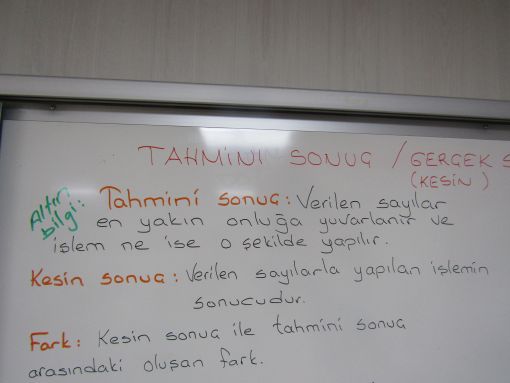 TAHMİNİ SONUÇ / GERÇEK S
(KESİN)
Altın bilgi: Tahmini sonuç: Verilen sayılar
en yakın onluğa yuvarlanır ve
işlem ne ise o şekilde yapılır.
Kesin sonuç: Verilen sayılarla yapılan işlemin
sonucudur.
Fark: Kesin sonuç ile tahmini sonuç
arasındaki oluşan fark.